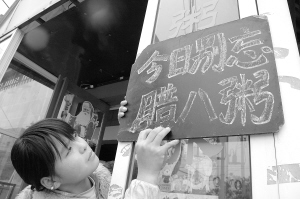 粥
今日别忘
腊八粥